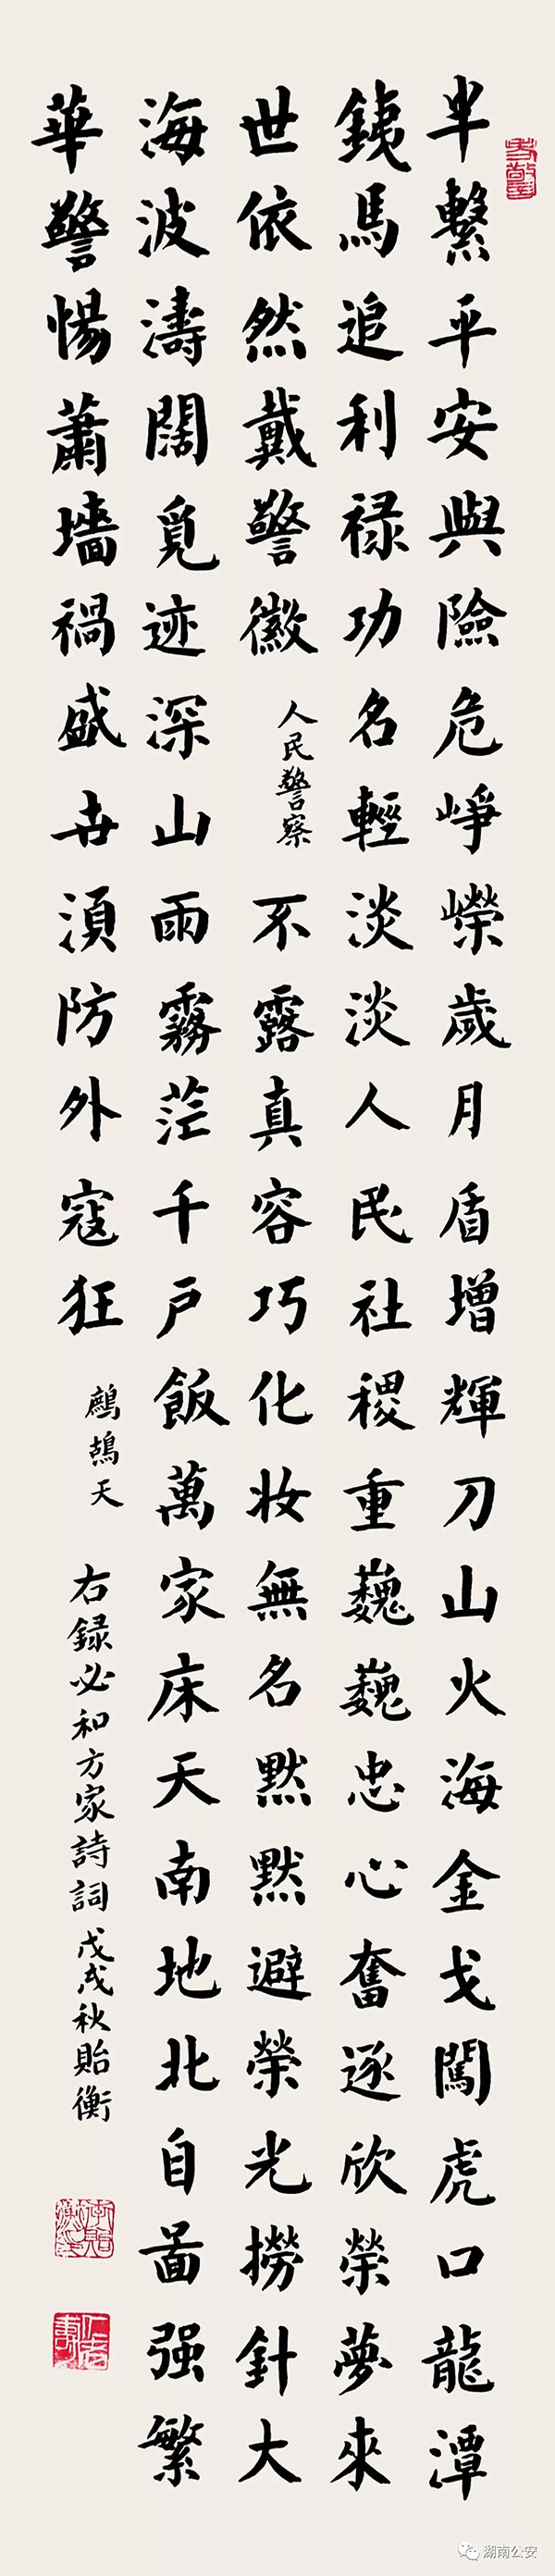 半繫平安與險危崢嶸歲月盾增輝刀山火海金戈闖虎口龍潭
銕馬追利禄功名輕淡淡人民社稷重巍巍忠心奮逐欣榮夢來
世依然戴警徽 人民警察 不露真容巧化妝無名默默避榮光撈針大
海波濤闊覓迹深山雨霧茫千戶飯萬家床天南地北自啚强繁
華警惕蕭墻禍盛卋須防外寇狂 鷓鴣天 右録必和方家詩詞戊戌秋貽衡
仁者壽
湖南公安